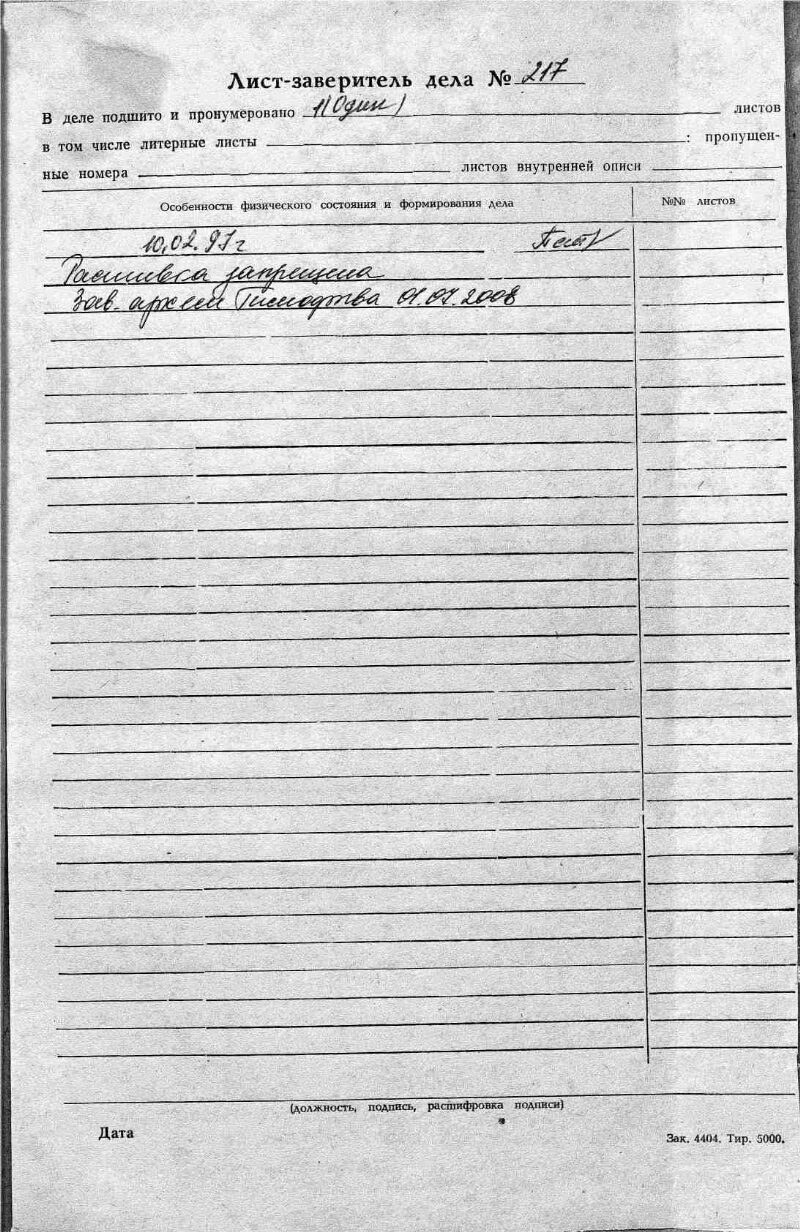 Лист-заверитель дела № 217
В деле подшито и пронумеровано 1(Один) листов
в том числе литерные листы : пропущен-
ные номера листов внутренней описи
Особенности физического состояния и формирования дела №№ листов
10.02.97 г
Расшивка запрещена
Зав. 01.07.2008
(должность, подпись, расшифровка подписи)
Дата
Зак. 4404. Тир. 5000.